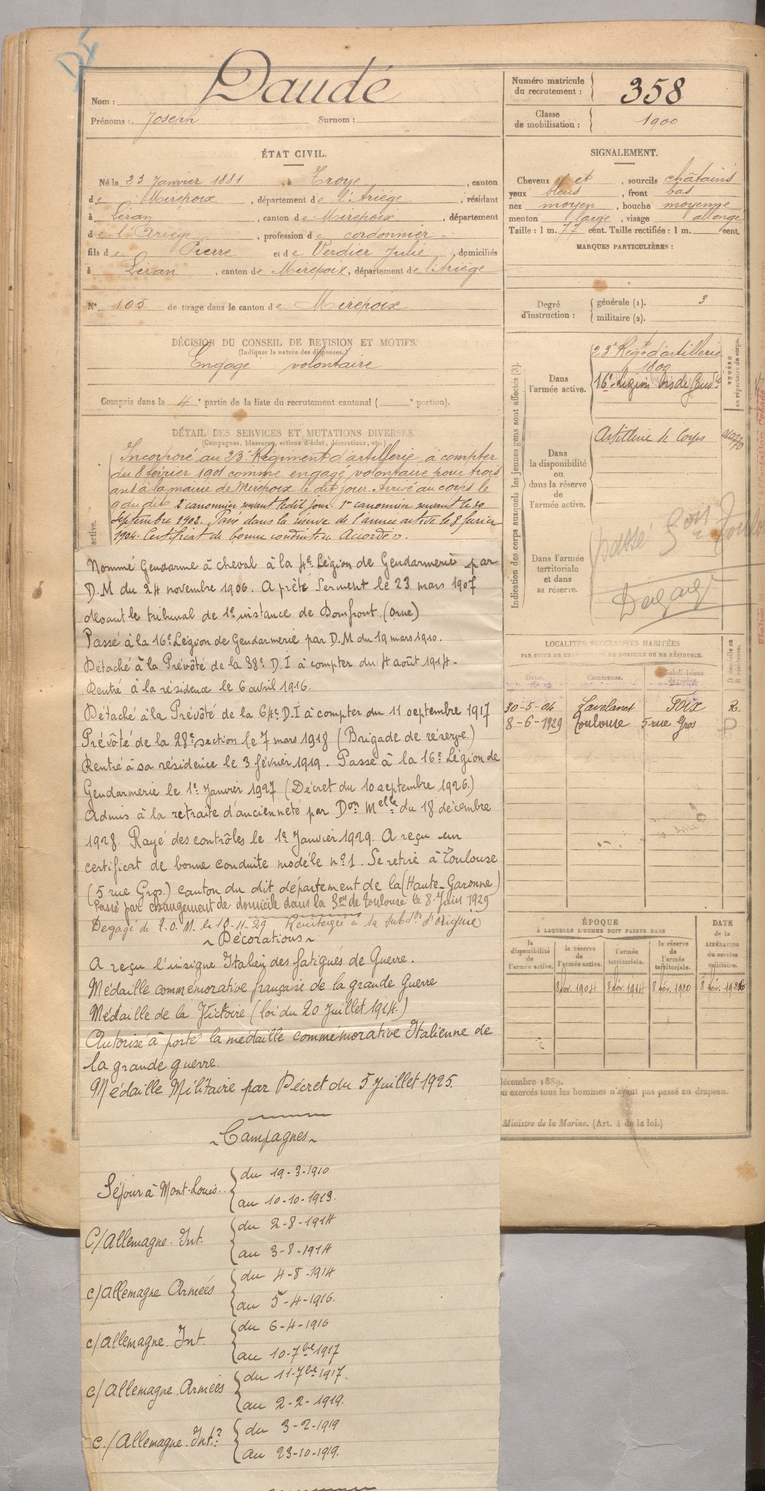 Nom : Daudé
Prénoms : Joseph Surnom :
ÉTAT CIVIL.
Né le 23 Janvier 1881, à Troye, canton
de Mirepoix, département de l'Ariège, résidant
à Léran, canton de Mirepoix, département
de l'Ariège, profession de cordonnier
fils de Pierre et de Verdier Julie, domiciliés
à Léran, canton de Mirepoix, département de l'Ariège
N° 105 de tirage dans le canton de Mirepoix
DÉCISION DU CONSEIL DE REVISION ET MOTIFS.
(Indiquer la nature des dispenses.)
Engagé volontaire
Compris dans la 4e partie de la liste du recrutement cantonal ( portion).
DÉTAIL DES SERVICES ET MUTATIONS DIVERSES.
(Campagnes, blessures, actions d'éclat, décorations, etc.)
Incorporé au 23e Régiment d'artillerie à compter
du 8 février 1901 comme engagé volontaire pour trois
ans à la mairie de Mirepoix le dit jour. Arrivé au corps le
9 du dit. 2e canonnier servant le dit jour. 1er canonnier servant le
septembre 1902. Passé dans la réserve de l'armée active le 8 février
1904. Certificat de bonne conduite « Accordé ».
active.
Nommé Gendarme à cheval à la 4e Légion de Gendarmerie par
D.M du 24 novembre 1906. A prêté Serment le 23 mars 1907
devant le tribunal de 1e instance de Domfront (Orne)
Passé à la 16e Légion de Gendarmerie par D.M du 19 mars 1910.
Détaché à la Prévôté de la 38e D.I à compter du 4 août 1914.
Rentré à la résidence le 6 avril 1916.
Détaché à la Prévôté de la 64e D.I à compter du 11 septembre 1917
Prévôté de la 28e section le 7 mars 1918 (Brigade de réserve)
Rentré à sa résidence le 3 février 1919. Passé à la 16e Légion de
Gendarmerie le 1er Janvier 1927 (Décret du 10 septembre 1926.)
Admis à la retraite d'ancienneté par Don Melle du 18 décembre
1928. Rayé des contrôles le 1er Janvier 1929. A reçu un
certificat de bonne conduite modèle n°1. Se retire à Toulouse
(5 rue Gros) canton du dit département de la (Haute-Garonne)
Passé par changement de domicile dans la Son de Toulouse le 8 Juin 1929
Dégagé de T.O.M. le 10-11-29 Réintégré à sa subdon d'origine
~ Décorations ~
A reçu l'insigne Italien des fatigues de Guerre.
Médaille commémorative française de la grande Guerre
Médaille de la Victoire (loi du 20 Juillet 1914)
Autorisé à porter la médaille commémorative Italienne de
la grande guerre.
Médaille Militaire par Décret du 5 Juillet 1925.
~ Campagnes ~
Séjour à Mont-Louis. du 19-3-1910
au 10-10-1913.
C/Allemagne Int. du 2-8-1914
au 3-8-1914
c/Allemagne Armées du 4-8-1914
au 5-4-1916.
c/Allemagne Int. du 6-4-1916
au 10-7bre 1917
c/Allemagne Armées du 11-7bre 1917.
au 2-2-1919.
c/Allemagne Intre du 3-2-1919
au 23-10-1919.
Numéro matricule du recrutement : 358
Classe de mobilisation : 1900
SIGNALEMENT.
Cheveux et, sourcils châtains
yeux bleus, front bas
nez moyen, bouche moyenne
menton large, visage allongé
Taille : 1 m. 77 cent. Taille rectifiée : 1 m. cent.
MARQUES PARTICULIÈRES :
Degré d'instruction : générale (1). 3
militaire (2).
Indication des corps auxquels les jeunes gens sont affectés (3).
Dans l'armée active.
23e Régt d'artillerie
16e Légion bis de Gendie
NUMÉRO au répertoire du corps.
Dans la disponibilité ou dans la réserve de l'armée active.
Artillerie de Corps
Dans l'armée territoriale et dans sa réserve.
passé Son Toulouse
Dégagé
LOCALITÉS SUCCESSIVES HABITÉES
Dates. Communes. Subdivisions
D domicile ou R résidence.
30-5-04 Lavelanet Foix R.
8-6-1929 Toulouse 5 rue Gros D
ÉPOQUE
À LAQUELLE L'HOMME DOIT PASSER DANS
DATE de la LIBÉRATION du service militaire.
la disponibilité de l'armée active.
la réserve de l'armée active.
l'armée territoriale.
la réserve de l'armée territoriale.
8 fév. 1904 8 fév. 1914 8 fév. 1920 8 fév. 1926
décembre 1889.
ou exercés tous les hommes n'ayant pas passé au drapeau.
Ministre de la Marine. (Art. 4 de la loi.)